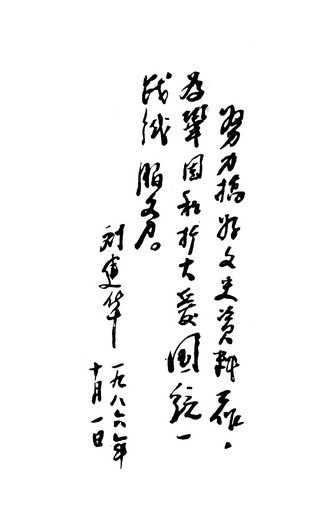 努力搞好文史资料工作，
为鞏固和扩大爱国统一
战线服务。
刘建华
一九八六年
十月一日